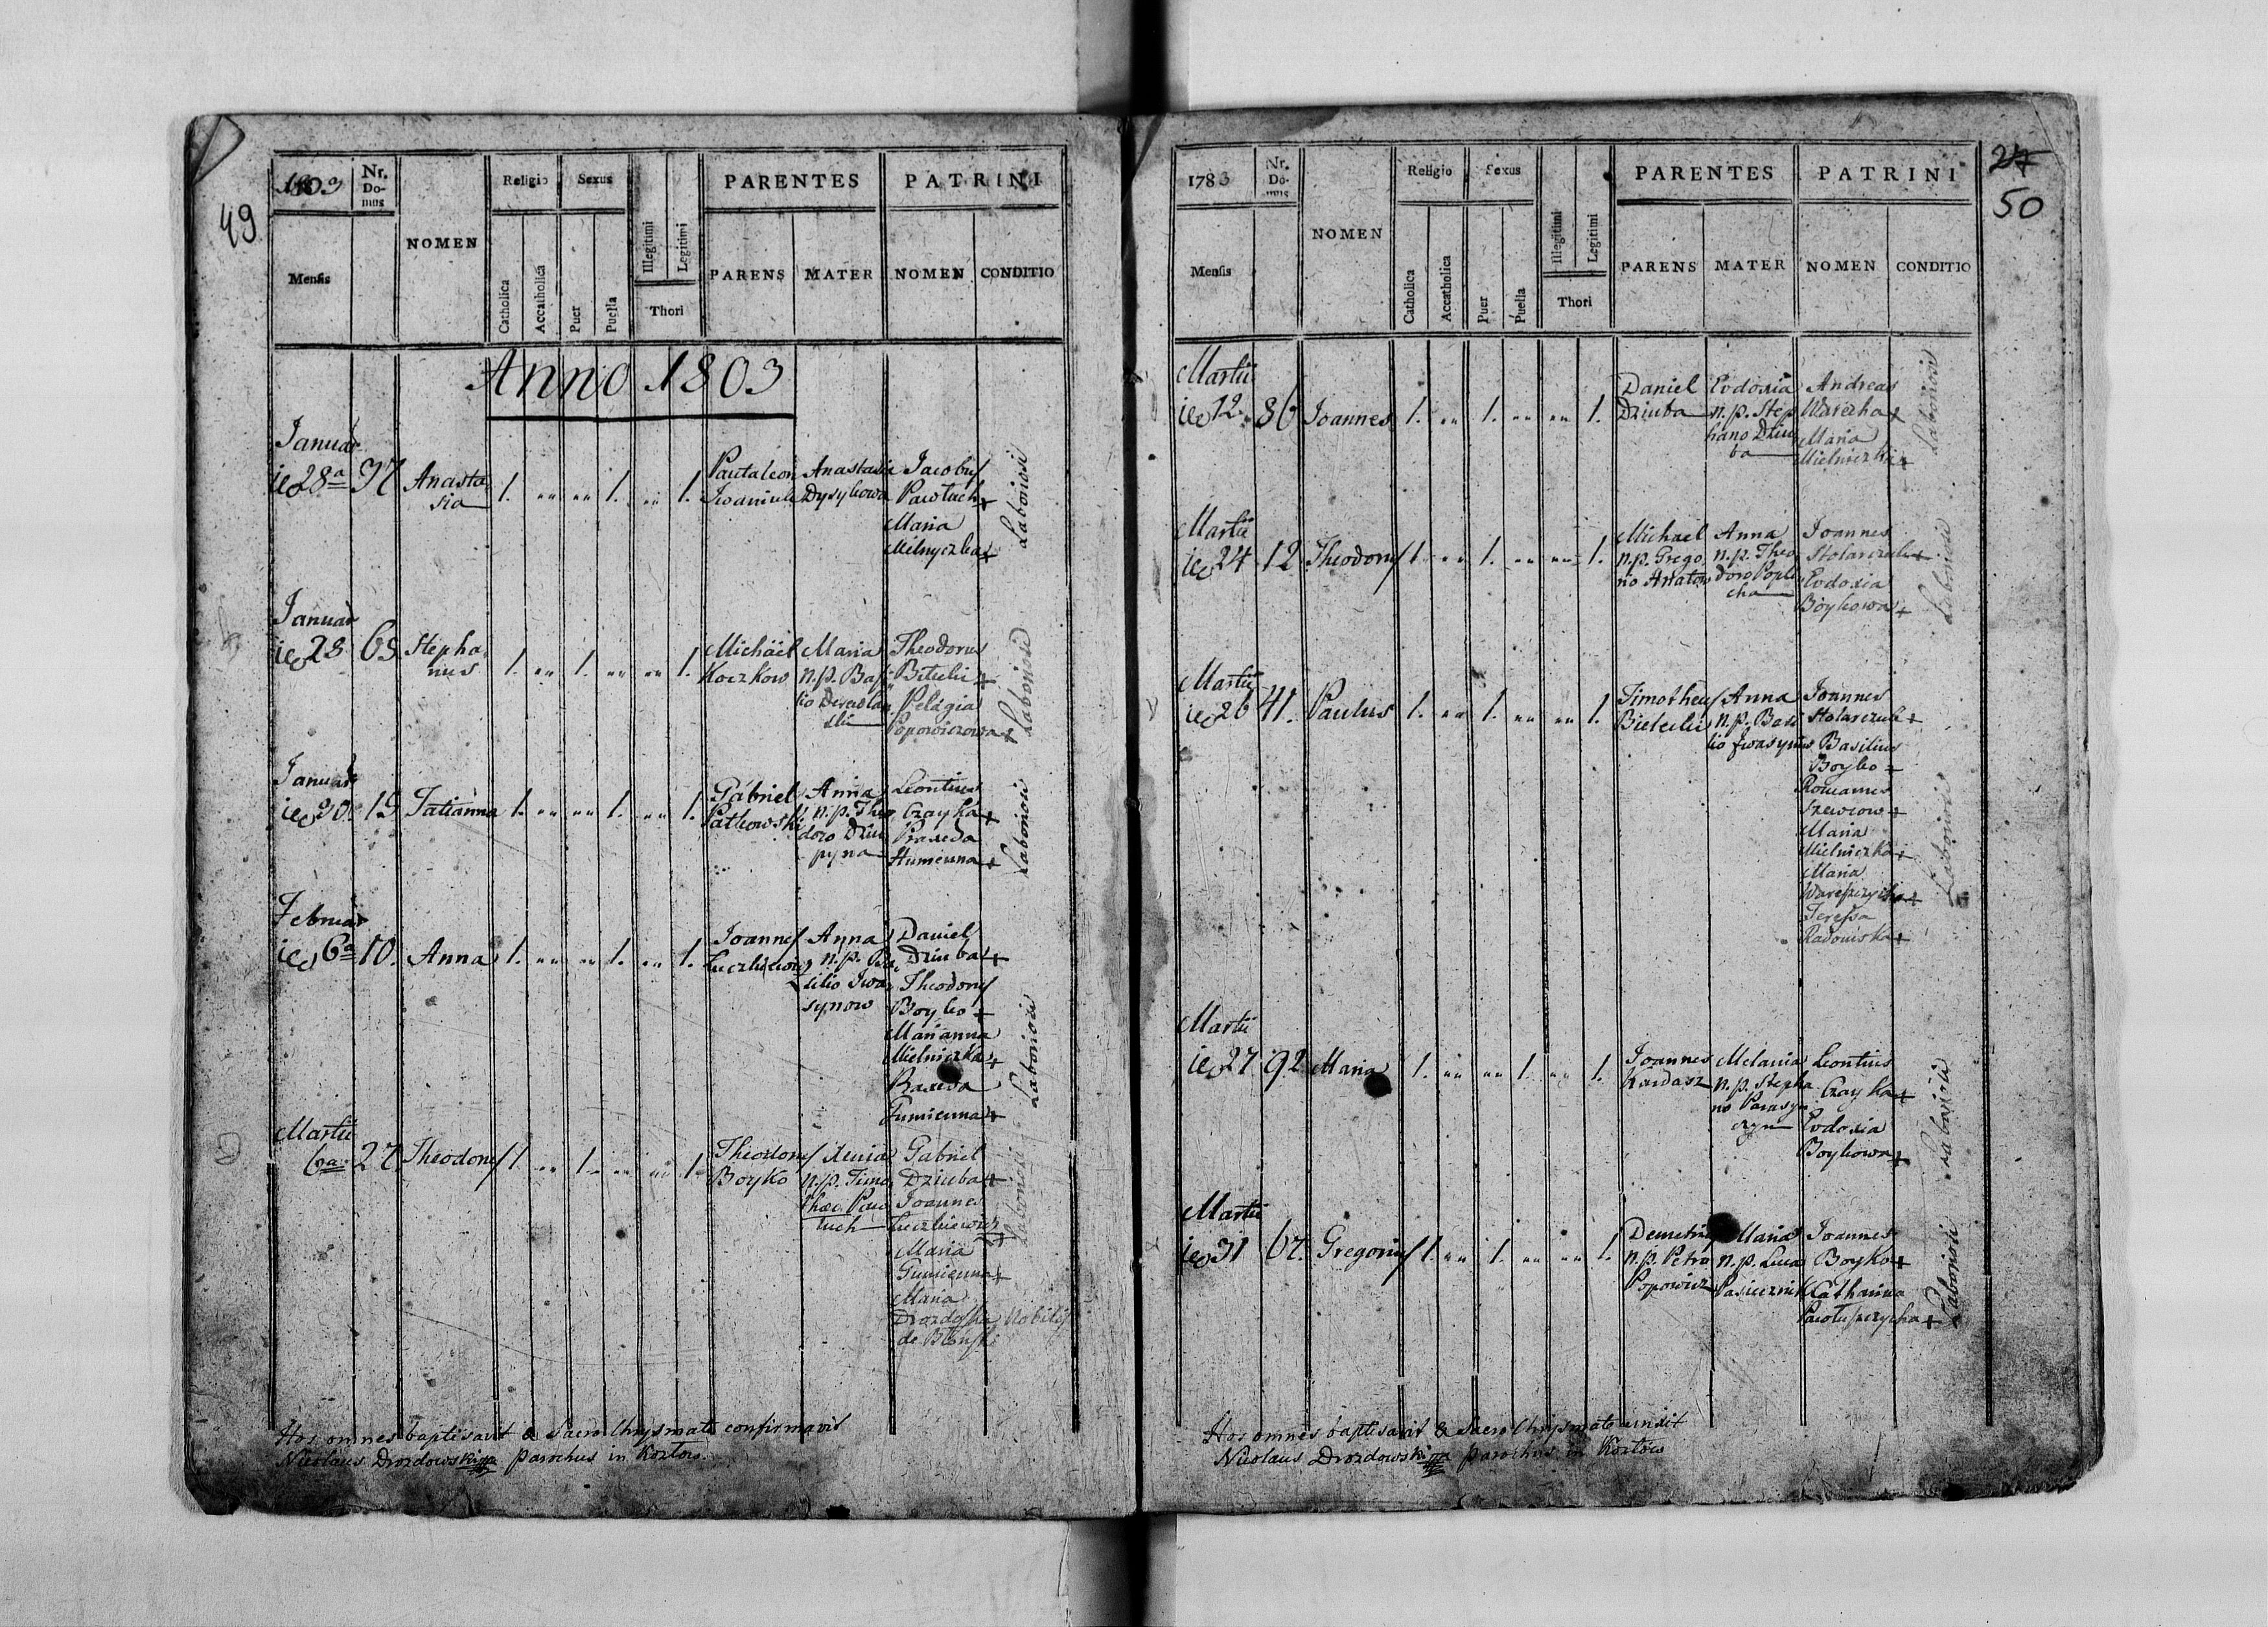 49
1803
Nr. Do- mus
NOMEN
Religio
Sexus
PARENTES
PATRINI
Mensis
Catholica
Accatholica
Puer
Puella
Illegitimi
Legitimi
Thori
PARENS
MATER
NOMEN
CONDITIO
Anno 1803
Januar
ie 28a 37 Anasta
sia
1. „ „ 1. „ 1.
Pantaleon
Iwaniuk
Anastasia
Dysykowa
Jacobus
Pawluch +
Maria
Melnyczka +
Laboriosi
Januar
ie 28 63 Stepha
nus
1. „ 1. „ „ 1.
Michael
Koczkow
Maria
n.p. Basi
lio
Theodorus
Biteliu +
Pelagia
Popowiczowa +
Laboriosi
Januar
ie 30. 19 Tatianna
1. „ „ 1. „ 1.
Gabriel
Patkowski
Anna
n.p. Theo
doro Dziu
pyna
Leontius
Czayka +
Praxeda
Humenna +
Laboriosi
Februar
ie 6a 10. Anna
1. „ „ 1. „ 1.
Joannes
Luczkiewicz
Anna
n.p. Ba
silio Iwa
synow
Daniel
Dziuba +
Theodorus
Boyko +
Marianna
Mielniczka +
Praxeda
Gumienna +
Laboriosi
Martii
6ta 27 Theodorus
1. „ 1. „ „ 1.
Theodorus
Boyko
Xenia
n.p. Timo
theo Paw
luch
Gabriel
Dziuba +
Joannes
Luczkiewicz +
Maria
Gumienna +
Maria
Drozdoska Nobilis
de
Laboriosi
Hos omnes baptisavit & Sacro Chrysmate confirmavit
Nicolaus Drozdowski parochus in Kozlow.
24
50
1783
Nr. Do- mus
NOMEN
Religio
Sexus
PARENTES
PATRINI
Mensis
Catholica
Accatholica
Puer
Puella
Illegitimi
Legitimi
Thori
PARENS
MATER
NOMEN
CONDITIO
Martii
ie 12. 86 Joannes
1. „ 1. „ „ 1.
Daniel
Dziuba
Evdoxia
n.p. Step
hano Dziu
ba
Andreas
Warezha +
Maria
Mielniczka +
Laboriosi
Martii
ie 24 12 Theodorus
1. „ 1. „ „ 1.
Michael
n.p. Grego
rio
Anna
n.p. Theo
doro Popli
cha
Joannes
Stolarczuk +
Evdoxia
Boykowa +
Laboriosi
Martii
ie 26 41. Paulus
1. „ 1. „ „ 1.
Timotheus
Bieteliu
Anna
n.p. Basi
lio Iwasynow
Joannes
Stolarczuk +
Basilius
Boyko +
Romanus
Szewcow +
Maria
Mielniczka +
Maria
Teressa
Radomska +
Laboriosi
Martii
ie 27 92 Maria
1. „ „ 1. „ 1.
Joannes
Kardasz
Melania
n.p. Stepha
no Parasyn
czyn
Leontius
Czayka +
Evdoxia
Boykowa +
Laboriosi
Martii
ie 31 67. Gregorius
1. „ 1. „ „ 1.
Demetrius
n.p. Petro
Popowicz
Maria
n.p. Luca
Pasicznik
Joannes
Boyko +
Catharina
Pawluszczycha +
Laboriosi
Hos omnes baptisavit & Sacro Chrysmate unxit
Nicolaus Drozdowski parochus in Kozlow